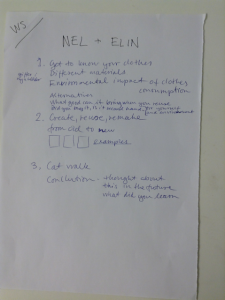 WS
NEL + ELIN
1. Got to know your clothes
Different materials
Environmental impact of clothes
consumption
alternative
What good can it bring when you reuse
2. Create, reuse, remake
from old to new
examples
3. Cat walk
Conclusion - thought about
this in the future
what did you learn